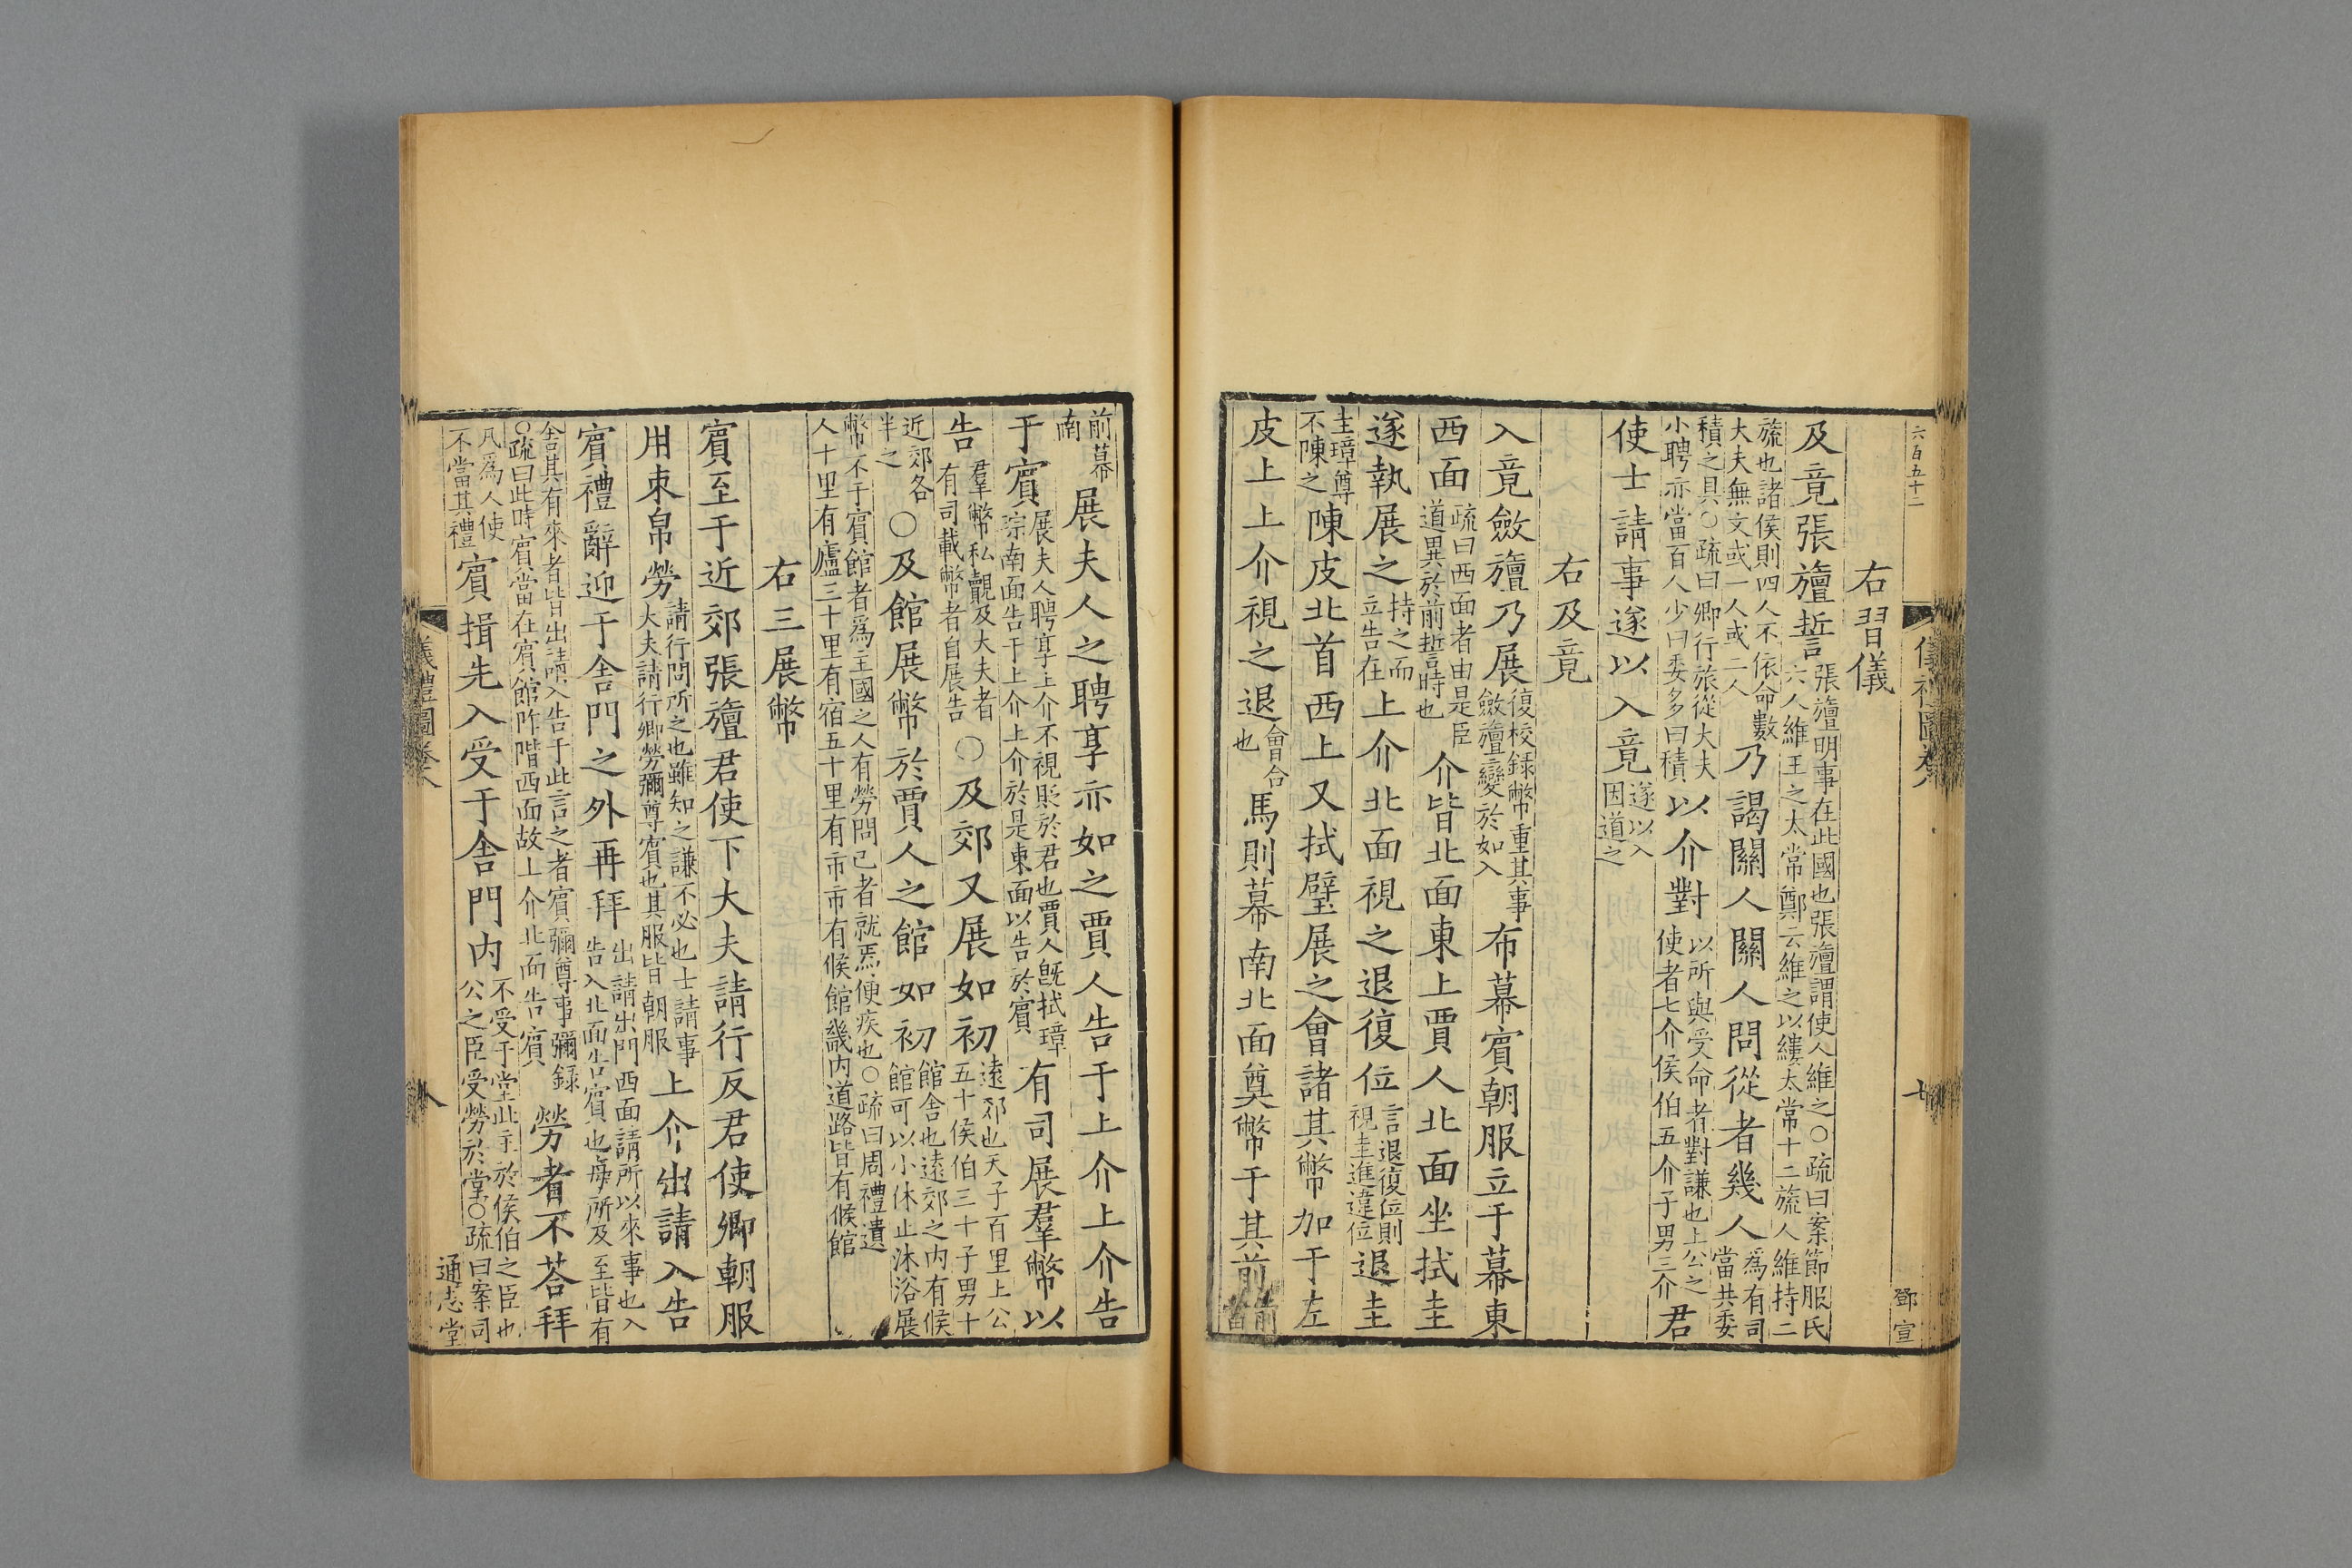 六百五十二
儀禮圖卷
七
鄧宣
右習儀
及竟張旜誓張旜明事在此國也張旜謂使人維之○疏曰案節服氏六人維王之太常鄭云維之以縷太常十二旒人維持二
旒也諸侯則四人不依命數大夫無文或一人或二人乃謁關人關人問從者幾人為有司當共委
積之具○疏曰卿行旅從大夫小聘亦當百人少曰委多曰積以介對以所與受命者對謙也上公之使者七介侯伯五介子男三介君
使士請事遂以入竟遂以入因道之
右及竟
入竟斂旜乃展復校録幣重其事斂旜變於如入布幕賓朝服立于幕東
西面疏曰西面者由是臣道異於前誓時也介皆北面東上賈人北面坐拭圭
遂執展之持之而立告在上介北面視之退復位言退復位則視圭進違位退圭
圭璋尊不陳之陳皮北首西上又拭璧展之會諸其幣加于左
皮上上介視之退會合也馬則幕南北面奠幣于其前前當
前幕南展夫人之聘享亦如之賈人告于上介上介告
于賓展夫人聘享上介不視貶於君也賈人旣拭璋琮南面告于上介上介於是東面以告於賓有司展羣幣以
告羣幣私覿及大夫者有司載幣者自展告○及郊又展如初遠郊也天子百里上公五十侯伯三十子男十
近郊各半之○及館展幣於賈人之館如初館舍也遠郊之内有候館可以小休止沐浴展
幣不于賓館者爲主國之人有勞問己者就焉便疾也○疏曰周禮遺人十里有廬三十里有宿五十里有市市有候館畿内道路皆有候館
右三展幣
賓至于近郊張旜君使下大夫請行反君使卿朝服
用束帛勞請行問所之也雖知之謙不必也士請事大夫請行卿勞彌尊賓也其服皆朝服上介出請入告
賓禮辭迎于舍門之外再拜出請出門西面請所以來事也入告入北面告賓也每所及至皆有
舍其有來者皆出請入告于此言之者賓彌尊事彌録○疏曰此時賓當在賓館阼階西面故上介北面告賓勞者不荅拜
凡爲人使不當其禮賓揖先入受于舍門内不受于堂此主於侯伯之臣也公之臣受勞於堂○疏曰案司
儀禮圖卷
八
通志堂